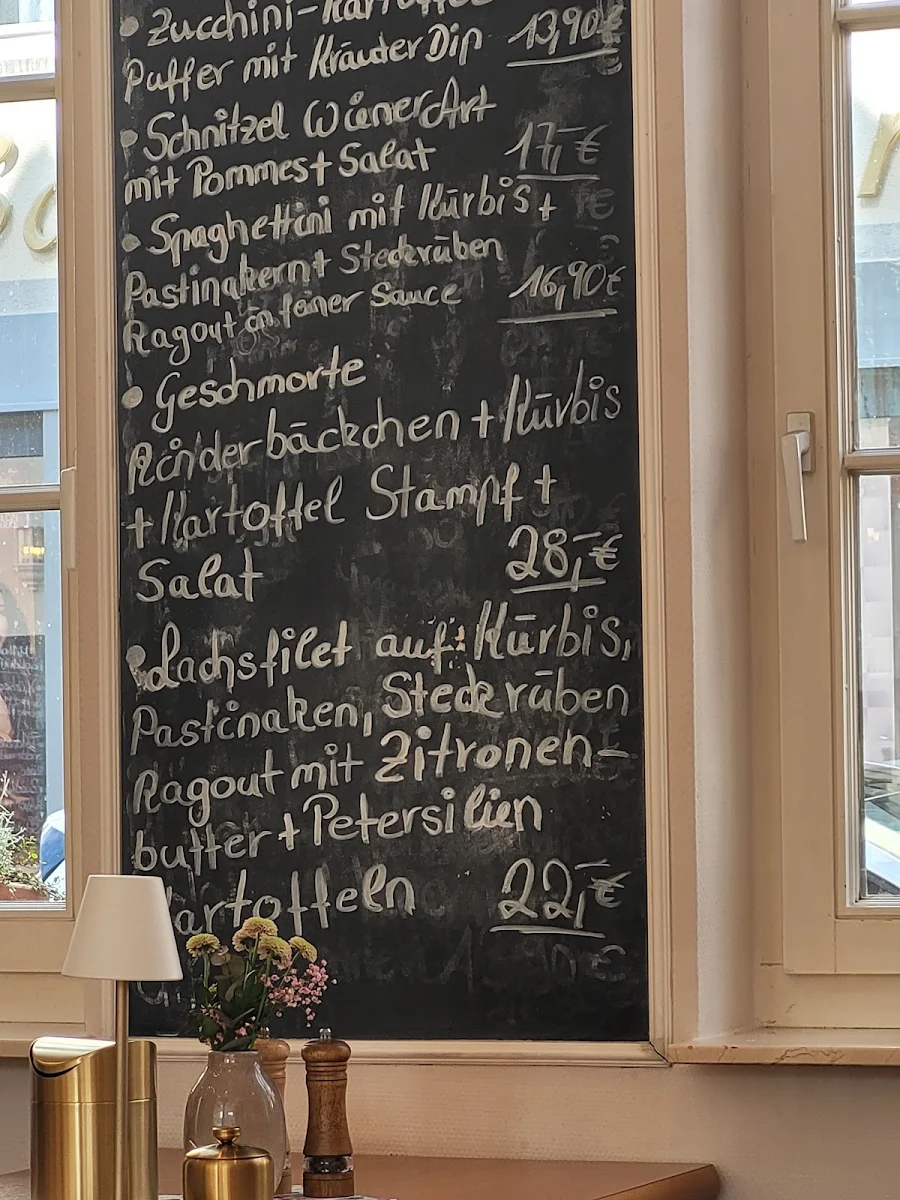 • Zucchini-Kartoffel
Puffer mit Kräuter Dip 13,90€
• Schnitzel Wiener Art
mit Pommes + Salat 17,-€
• Spaghettini mit Kürbis +
Pastinakern + Steckrüben
Ragout in feiner Sauce 16,90€
• Geschmorte
Rinderbäckchen + Kürbis
+ Kartoffel Stampf +
Salat 28,-€
• Lachsfilet auf Kürbis,
Pastinaken, Steckrüben
Ragout mit Zitronen-
butter + Petersilien
Kartoffeln 22,-€